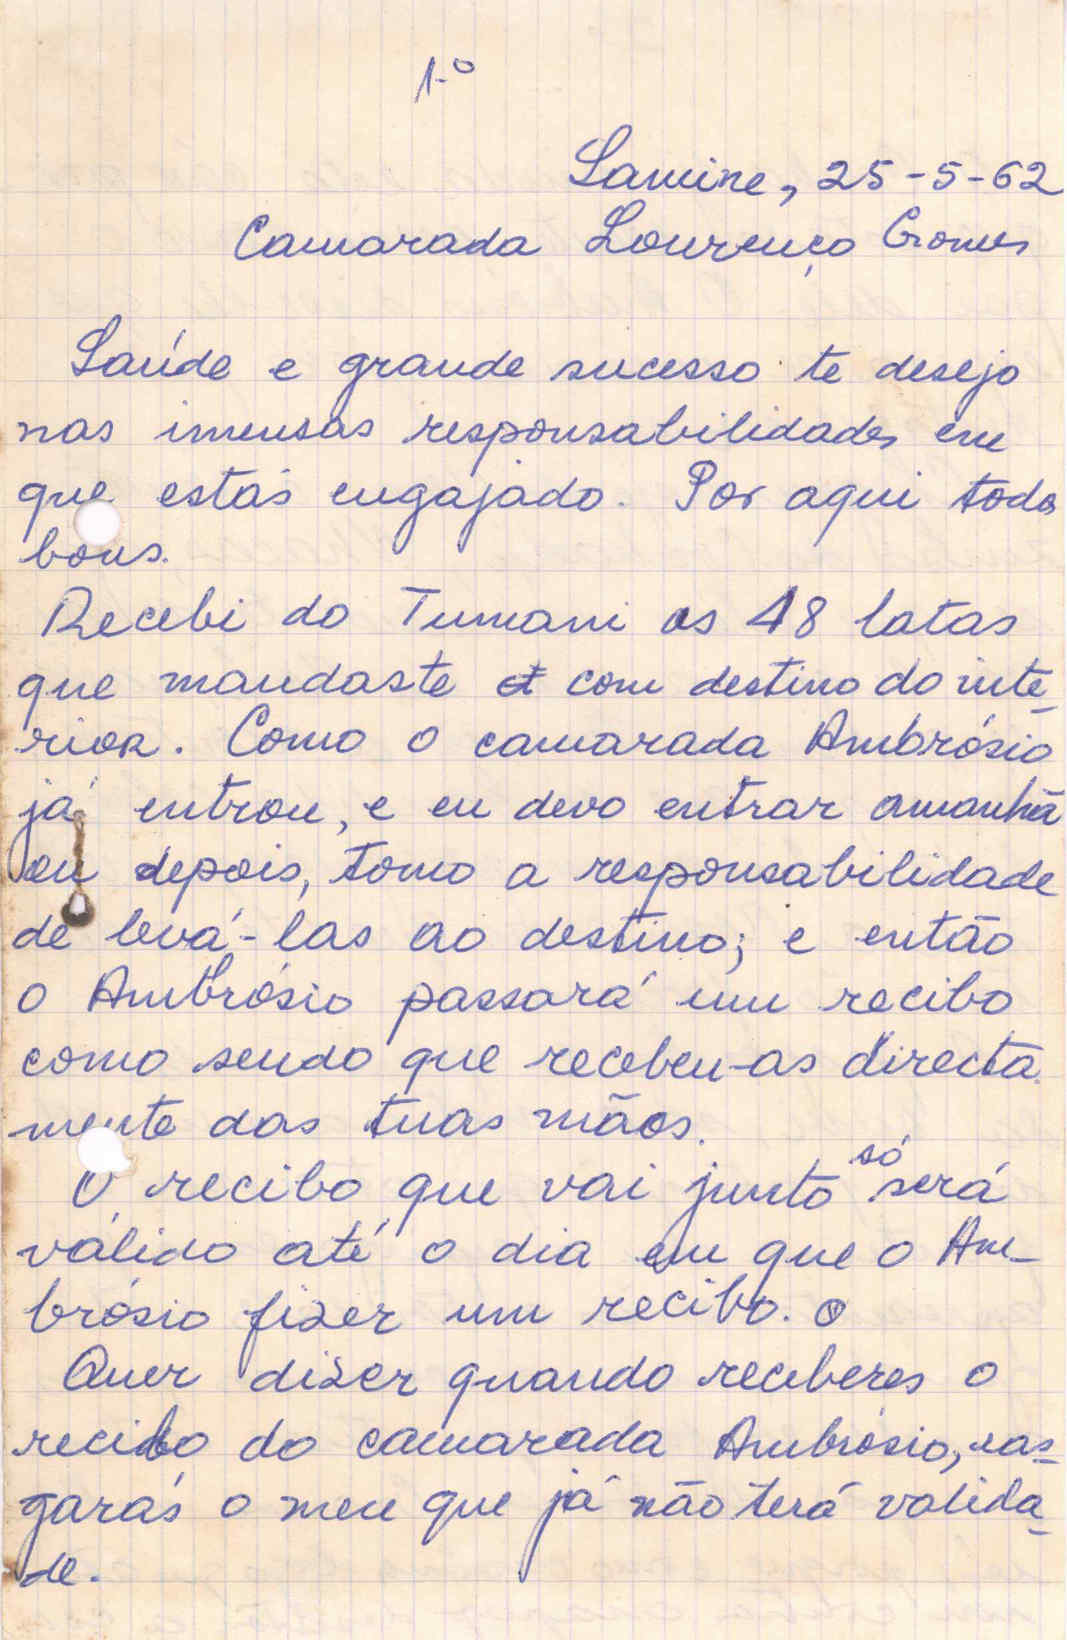 1-º
Samine, 25-5-62
Camarada Lourenço Gomes
Saúde e grande sucesso te desejo
nas imensas responsabilidades em
que estás engajado. Por aqui todos
bons.
Recebi do Tumani as 48 latas
que mandaste com destino do inte-
rior. Como o camarada Ambrósio
já entrou, e eu devo entrar amanhã
ou depois, tomo a responsabilidade
de levá-las ao destino; e então
o Ambrósio passará um recibo
como sendo que recebeu-as directa-
mente das tuas mãos.
O recibo que vai junto só será
válido até o dia em que o Am-
brósio fizer um recibo. O
Quer dizer quando receberes o
recibo do camarada Ambrósio, ras-
garás o meu que já não terá valida-
de.